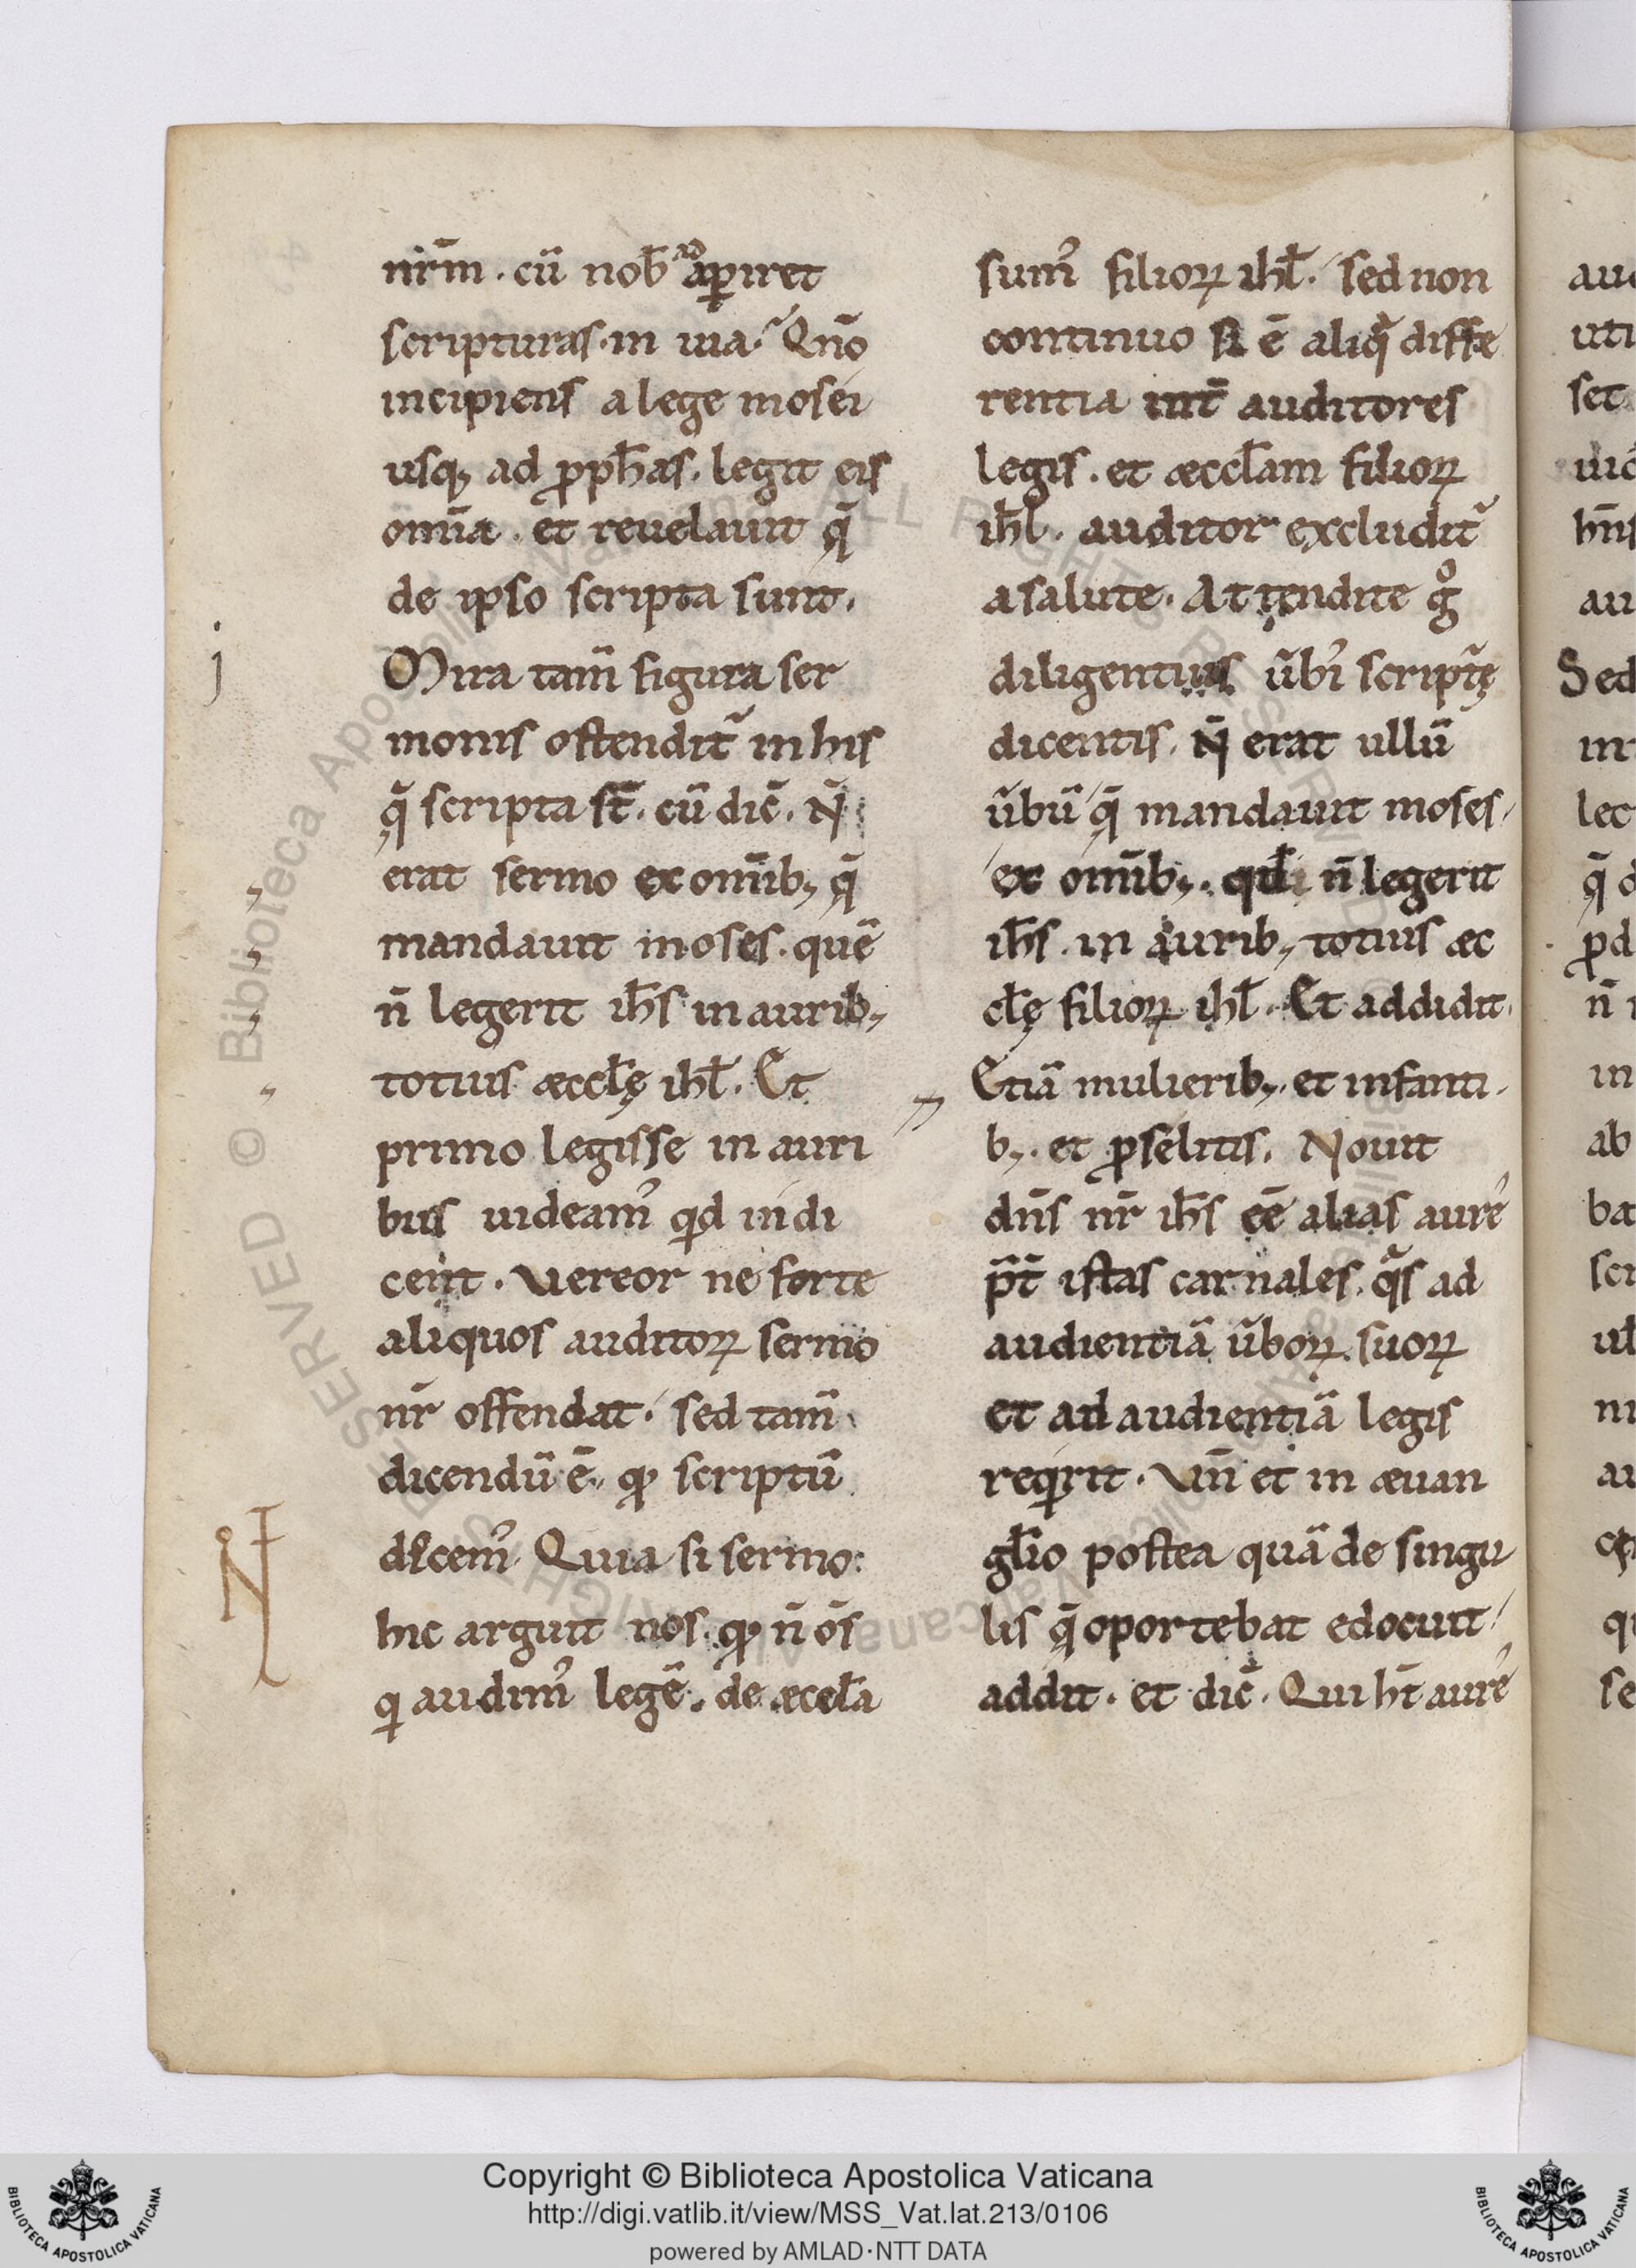 nr̄m . cū nob̄ adaꝑiret
scripturas . in uia . Qn̄o
incipiens a lege mosei
usq; ad ꝓph̄as . legit eis
om̄ia . et reuelauit q̄
de ipso scripta sunt .
j
Mira tam̄ figura ser
monis ostendit᷑ in his
q̄ scripta st̄ . cū dic̄ . N̄
erat sermo ex om̄ib; q̄
mandauit moses . quē
n̄ legerit ih̄s in aurib;
totius æccl̄ę ihl̄ . Et
primo legisse in auri
bus uideam᷒ qd indi
cent . Vereor ne forte
aliquos auditoꝝ sermo
nr̄ offendat . sed tam̄
dicendū ē . qđ scriptū
dicem᷒ . Quia si sermo
hic arguit nos . qđ n̄ os̄
qi audim᷒ legē . de æccl̄a
sum᷒ filioꝝ ihl̄ . sed non
continuo si ē aliq̄ diffe
rentia int̄ auditores
legis . et æccl̄am filioꝝ
ih̄l . auditor excludit᷑
a salute . Attendite gͦ
diligentius ūbi scriptᷓę
dicentis . N̄ erat ullū
ūbū q̄ mandauit moses
ex om̄ib; . qd̄ n̄ legerit
ih̄s . in aurib; totius æc
cl̄ę filioꝝ ihl̄ . Et addidit .
Etiā mulierib; . et infanti .
b; . et ꝓselitis . Nouit
dn̄s nr̄ ih̄s eē alias aure᷒
p̄t̄ istas carnales . qᷓs ad
audientiā ūboꝝ suoꝝ
et ad audientiā legis
reqirit . Vn̄ et in æuan
gl̄io postea quā de singu
lis q̄ oportebat edocuit
addit . et dic̄ . Qui ht̄ aure᷒
Sed
Copyright © Biblioteca Apostolica Vaticana
http://digi.vatlib.it/view/MSS_Vat.lat.213/0106
powered by AMLAD·NTT DATA
BIBLIOTECA APOSTOLICA VATICANA
BIBLIOTECA APOSTOLICA VATICANA